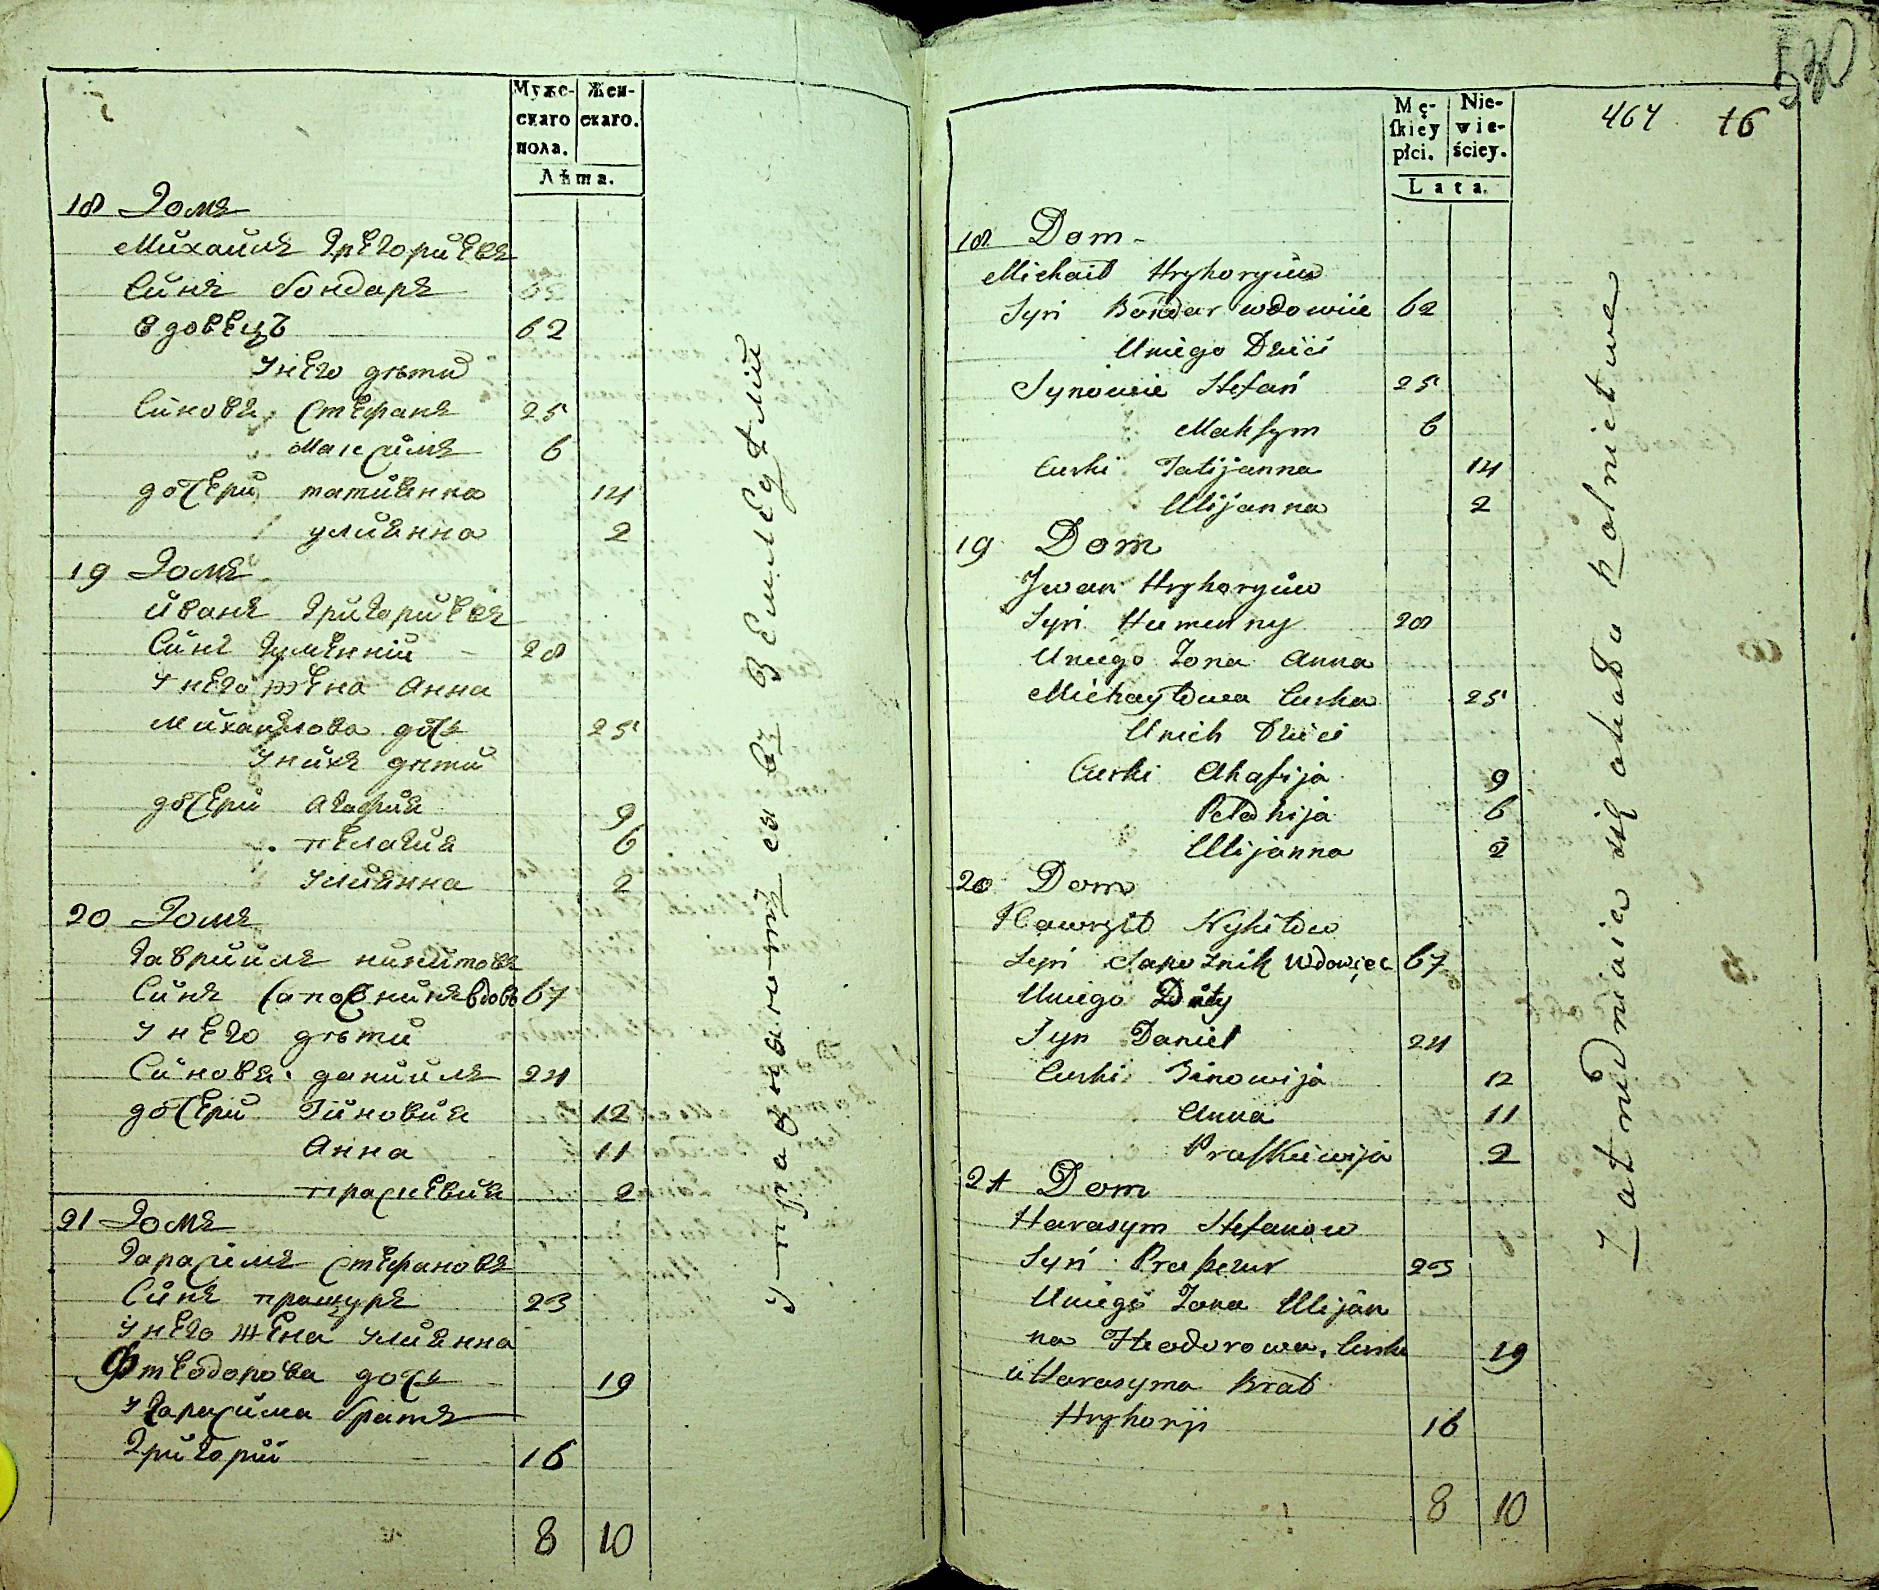 Муже- Жен-
скаго скаго.
пола.
Лѣта.
18 Домъ
Михаилъ Грегориевъ
Синъ бондаръ
вдовецъ 62
У него дѣти
Синовя, Стефанъ 25
Максимъ 6
дочери татиянна 14
улиянна 2
19 Домъ
Иванъ Григориевъ
Синъ Гуменний 28
У него жена Анна
Михайлова дочь 25
У нихъ дѣти
дочери Агафия 9
пелагия 6
Улиянна 2
20 Домъ
Гавриилъ никитовъ
Синъ Сапожникъ вдовъ 67
У него дѣти
Синовя. даниилъ 24
дочери Зиновия 12
Анна 11
праскевия 2
21 Домъ
Гарасимъ Стефановъ
Синъ пращуръ 23
У него жена улиянна
Фтеодорова дочь 19
У Гарасима братъ
Григорий 16
8 10
Упражняютъ ся въ Земледѣлии
530
Mę- Nie-
ſkiey wie-
płci. ściey.
Lata.
467 16
18 Dom
Michaił Hryhoryiw
Syn Bondar wdowiic 62
Uniego Dzieci
Synowie Stefan 25
Makſym 6
Curki Tatijanna 14
Ulijanna 2
19 Dom
Jwan Hryhoryiw
Syn Humenny 28
Uniego Żona Anna
Michayłowa Curka 25
Unich Dzieci
Curki Ahafija 9
Pełahija 6
Ulijanna 2
20 Dom
Hawryił Nykitow
Syn Sapożnik Wdowiec 67
Uniego Dity
Syn Danieł 24
Curki Zinowija 12
Anna 11
Praſkiewija 2
21 Dom
Harasym Stefanow
Syn Praszczur 23
Uniego Żona Ulijan
na Fteodorowa, Curka 19
u Harasyma Brat
Hryhorij 16
8 10
Zatrudniaią się około Rolnictwa